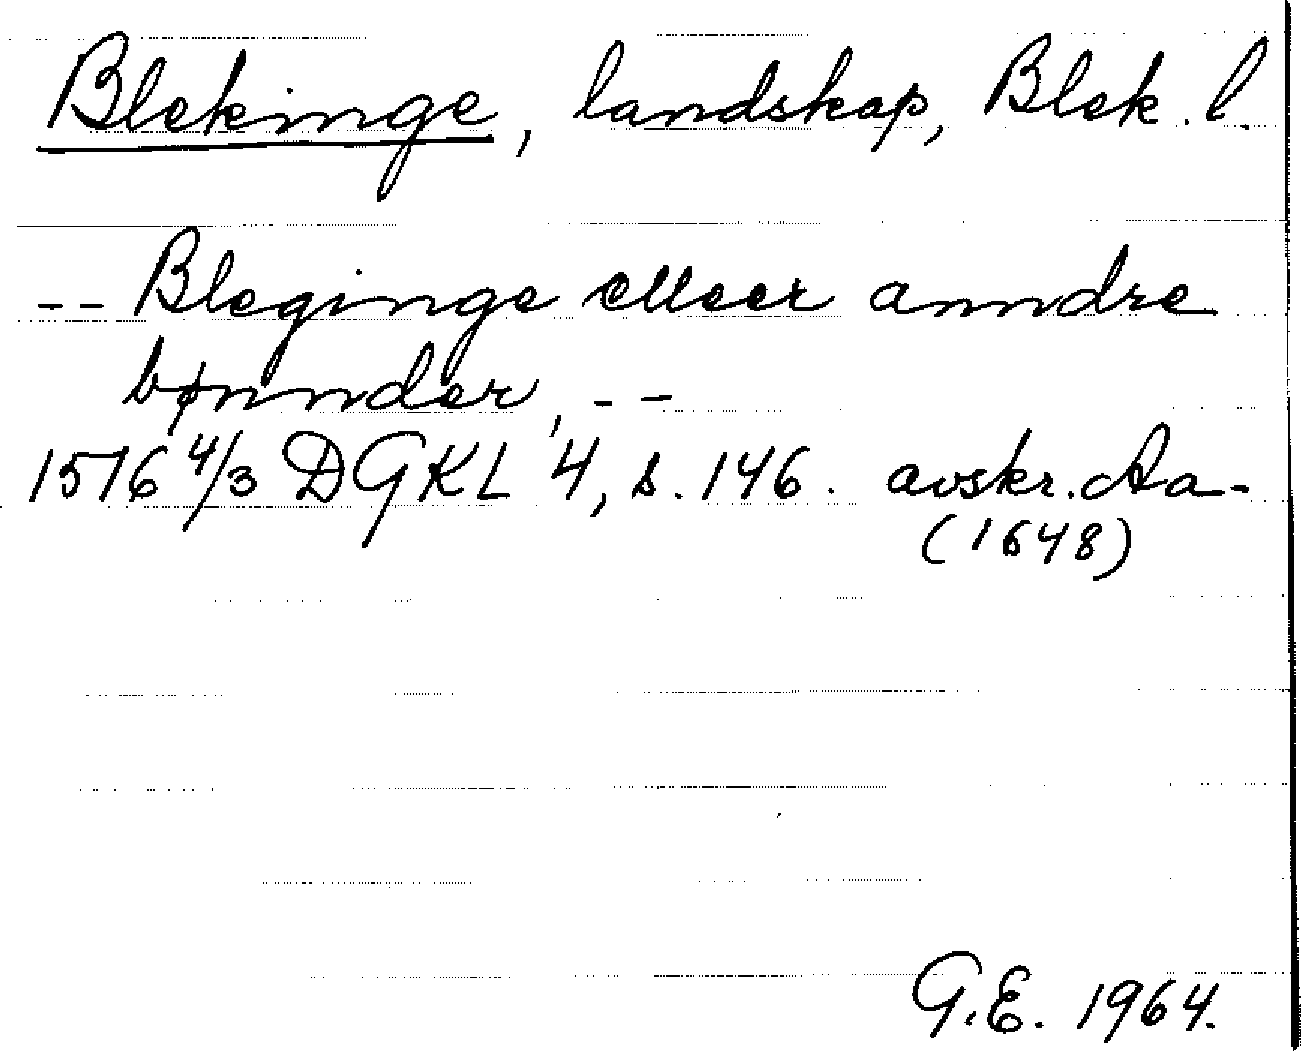 Blekinge, landskap, Blek. l.
-- Bleginge elleer anndre
bønnder, --
1576 4/3 DGKL 4, s. 146. avskr. Aa-
(1648)
G.E. 1964.